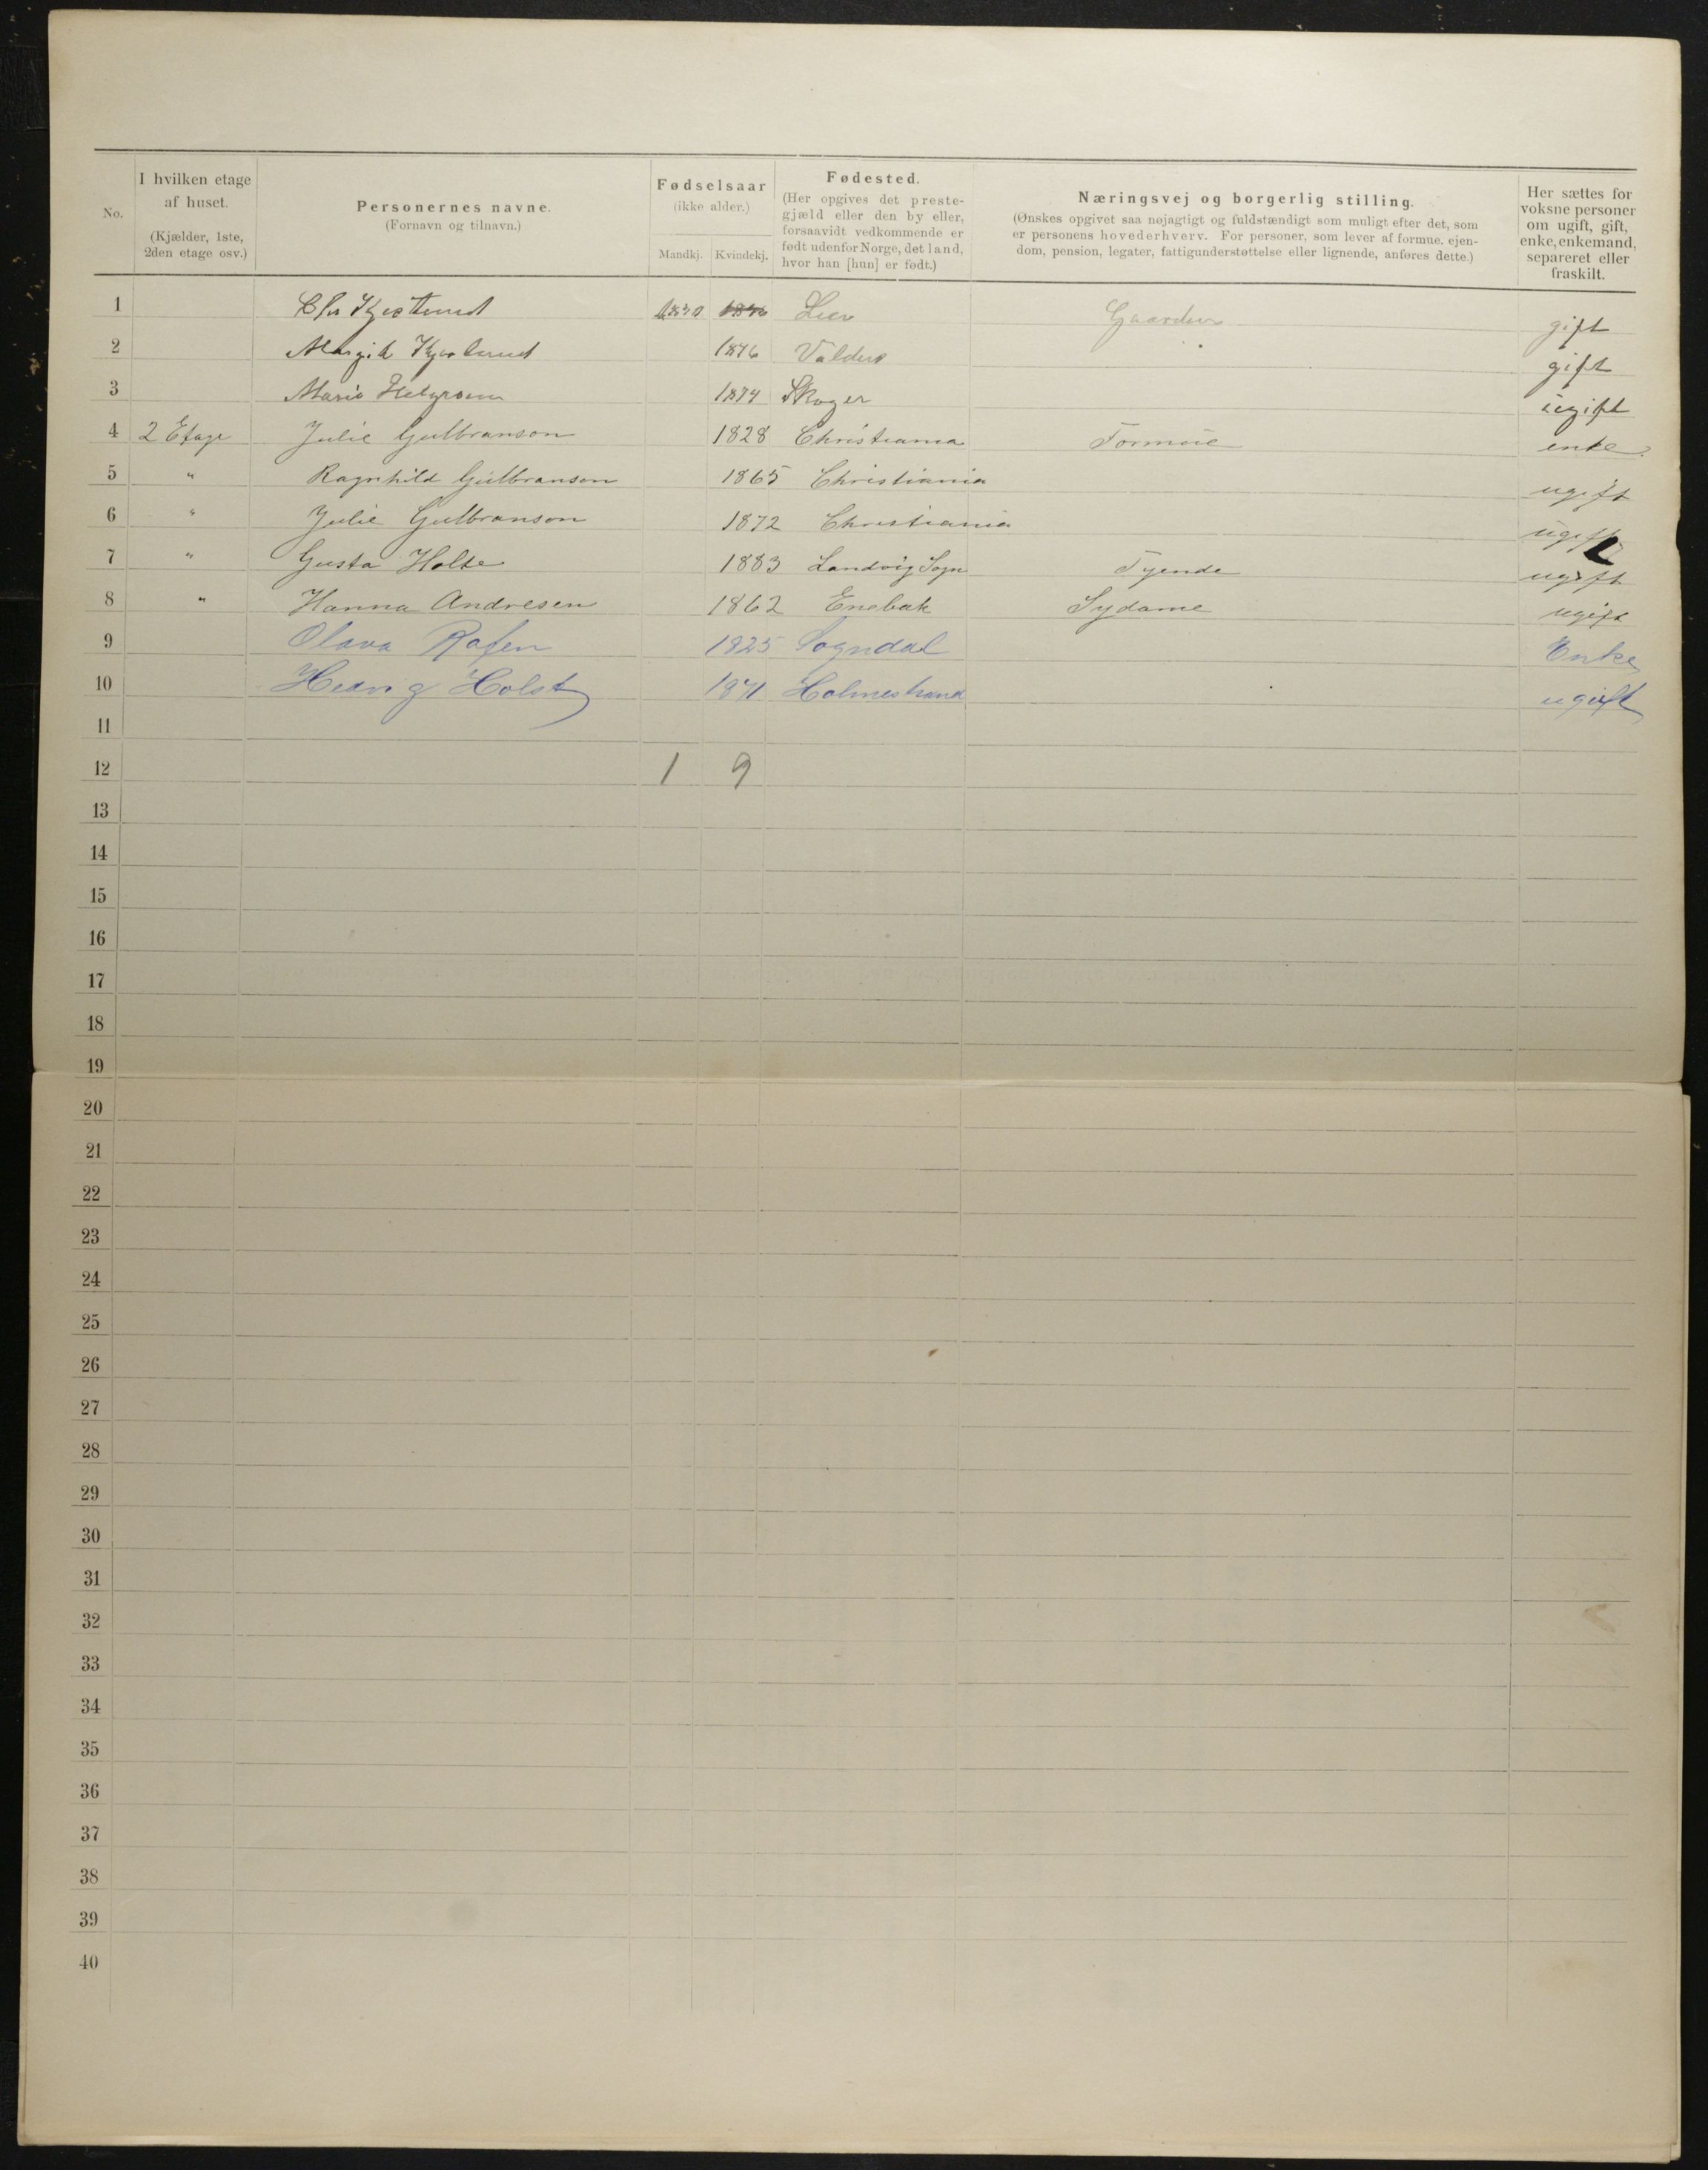 No.
I hvilken etage af huset.
(Kjælder, 1ste, 2den etage osv.)
Personernes navne.
(Fornavn og tilnavn.)
Fødselsaar
(ikke alder.)
Mandkj. Kvindekj.
Fødested.
(Her opgives det prestegjæld eller den by eller, forsaavidt vedkommende er født udenfor Norge, det land, hvor han [hun] er født.)
Næringsvej og borgerlig stilling.
(Ønskes opgivet saa nøjagtigt og fuldstændigt som muligt efter det, som er personens hovederhverv. For personer, som lever af formue, ejendom, pension, legater, fattigunderstøttelse eller lignende, anføres dette.)
Her sættes for voksne personer om ugift, gift, enke, enkemand, separeret eller fraskilt.
1 Chr Lier gift
2 Margit 1876 Valders gift
3 Marie 1874 Skoger ugift
4 2 Etage Julie Gulbranson 1828 Christiania Formue enke.
5 " Ragnhild Gulbranson 1865 Christiania ugift
6 " Julie Gulbranson 1872 Christiania ugift
7 " Gusta Holte 1883 Landvig Sogn Tyende ugift
8 " Hanna Andresen 1862 Enebak Sydame ugift
9 Olava Rafen 1825 Sogndal Enke
10 Holst 1871 Holmestrand ugift
11
12 1 9
13
14
15
16
17
18
19
20
21
22
23
24
25
26
27
28
29
30
31
32
33
34
35
36
37
38
39
40